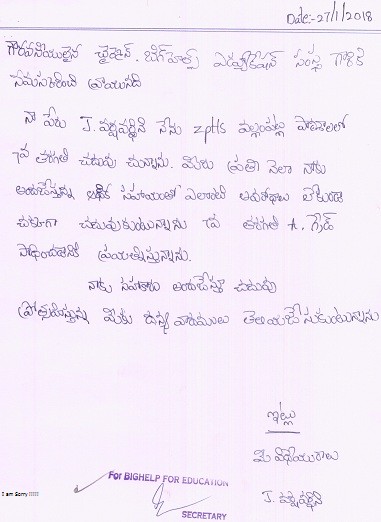 Date:-27/1/2018
గౌరవనీయులైన ఛైర్మెన్. బిగ్‌హెల్ప్ ఎడ్యుకేషన్ సంస్థ గారికి
నమస్కరించి వ్రాయునది
నా పేరు J. వర్షవర్ధిని నేను ZPHS పాఠశాలలో
7వ తరగతి చదువు చున్నాను. మీరు ప్రతి నెలా నాకు
అందచేస్తున్న ఆర్థిక సహాయంతో ఎలాంటి అవరోధాలు లేకుండా
చక్కగా చదువుకుంటున్నాను 7వ తరగతి A. గ్రేడ్
సాధించడానికి ప్రయత్నిస్తున్నాను.
నాకు సహకారం అందచేస్తూ చదువు
ప్రోత్సహిస్తున్న మీకు ధన్యవాదములు తెలియచేసుకుంటున్నాను
ఇట్లు
మీ విధేయురాలు
J. వర్షవర్ధిని
For BIGHELP FOR EDUCATION
SECRETARY
I am Sorry !!!!!